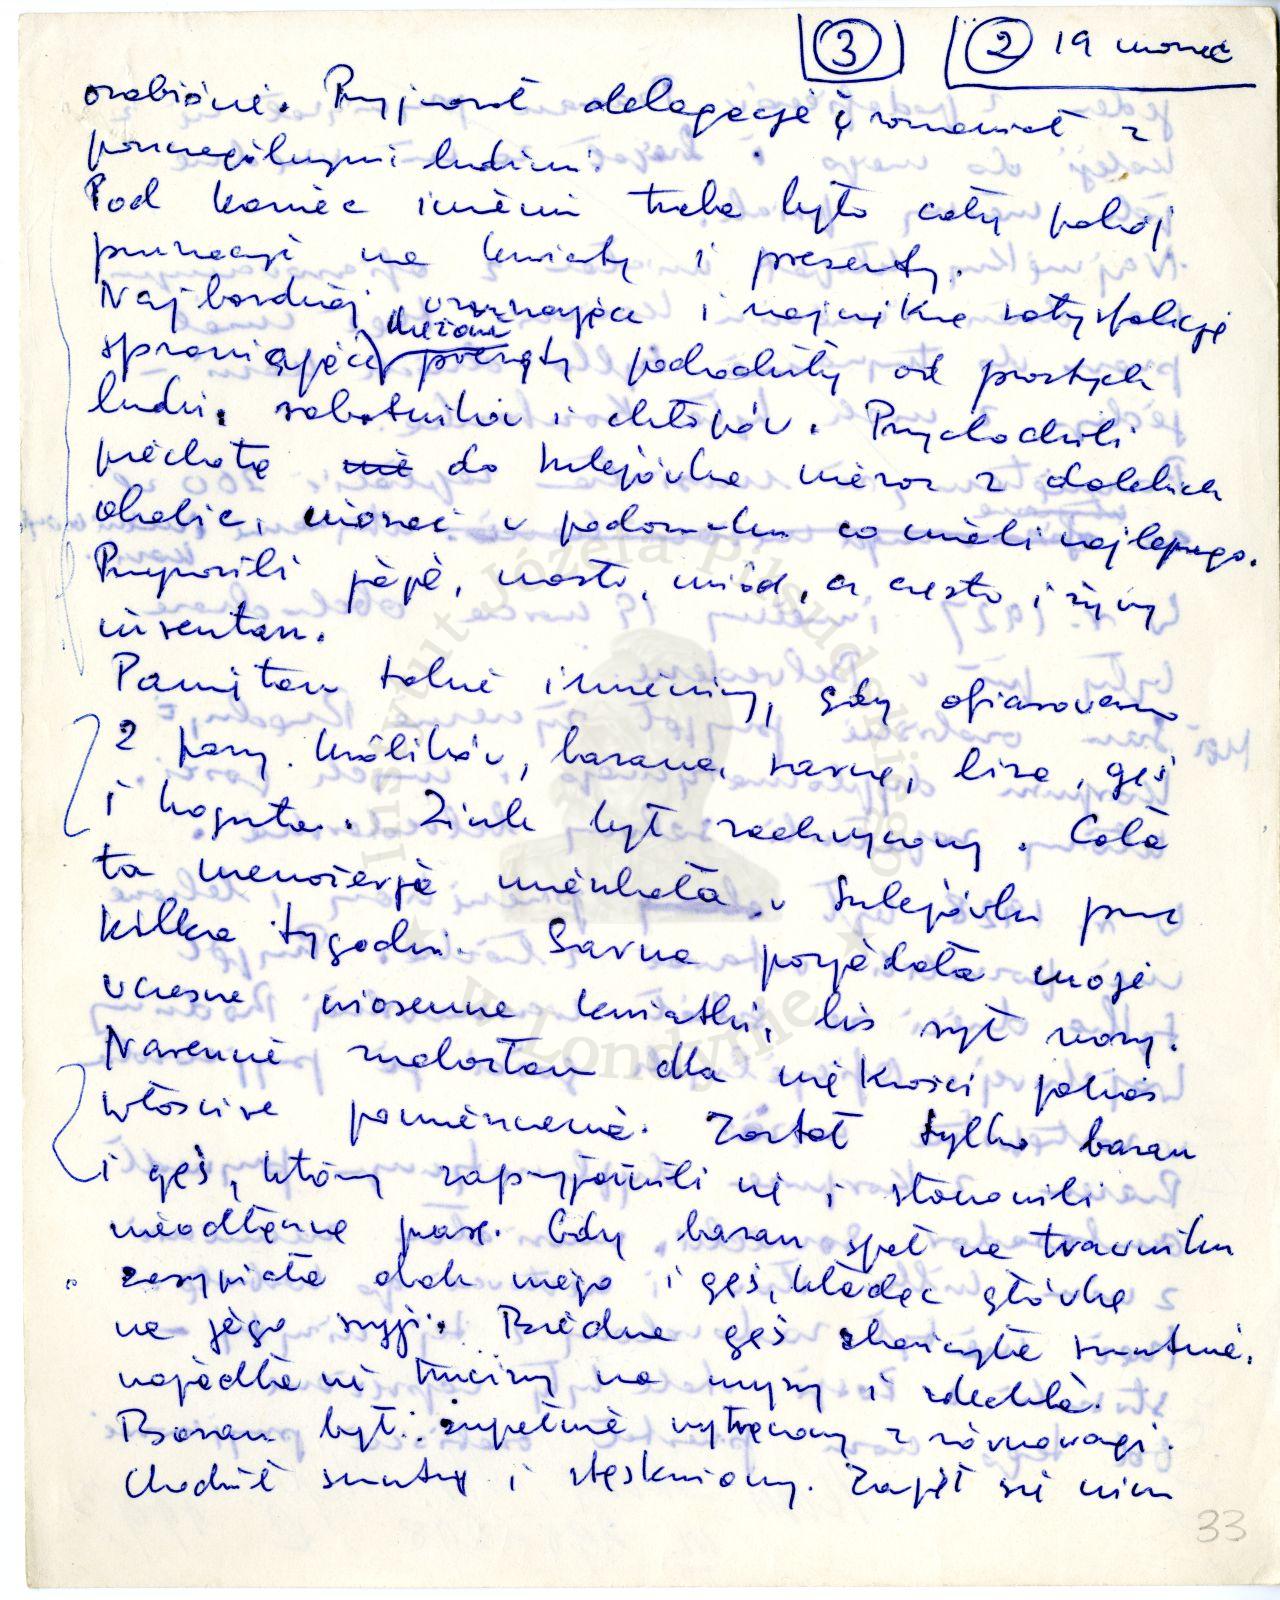 3 2 19 marzec
osobiście. Przyjmował delegacje i rozmawiał z
poszczególnymi ludźmi.
Pod koniec imienin trzeba było cały pokój
przeznaczyć na kwiaty i prezenty.
Najbardziej wzruszające i największą satysfakcję
składane
sprawiające prezenty pochodziły od prostych
ludzi, robotników i chłopów. Przychodzili
piechotą nie do Sulejówka nieraz z dalekich
okolic, niosąc w podarunku co mieli najlepszego.
Przynosili jaja, masło, miód, a często i żywy
inwentarz.
Pamiętam takie imieniny, gdy ofiarowano
2 pary królików, barana, sarnę, lisa, gęś
i koguta. Ziuk był zachwycony. Cała
ta menażeria mieszkała w Sulejówku przez
kilka tygodni. Sarna pozjadała moje
wczesne wiosenne kwiatki, lis wył w nocy.
Nareszcie znalazłam dla większości jakieś
właściwe pomieszczenie. Został tylko baran
i gęś, którzy zaprzyjaźnili się i stanowili
nieodłączną parę. Gdy baran spał na trawniku
zasypiała obok niego i gęś, kładąc główkę
na jego szyji. Biedna gęś skończyła smutnie,
najadła się trucizny na myszy i zdechła.
Baran był zupełnie wytrącony z równowagi.
Chodził smutny i stęskniony. Zajął się nim
33
Instytut Józefa Piłsudskiego
w Londynie